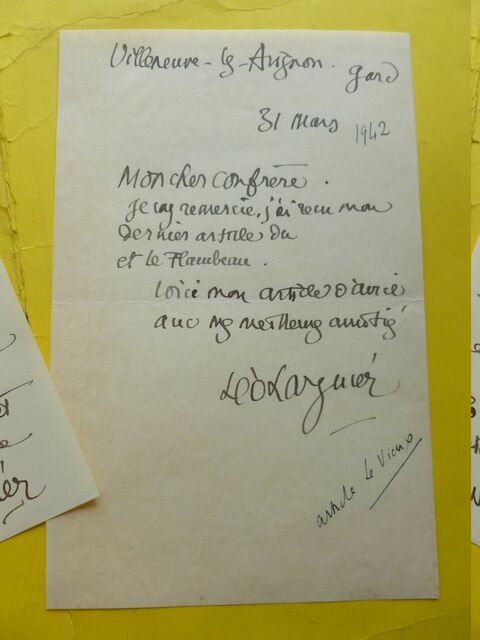 Villeneuve-lez-Avignon. Gard
31 mars 1942
Mon cher confrère.
Je vous remercie, j'ai reçu mon
dernier article du
et le Flambeau.
Voici mon article d'avril
avec mes meilleures amitiés
Léo Larguier
article Le Vieux